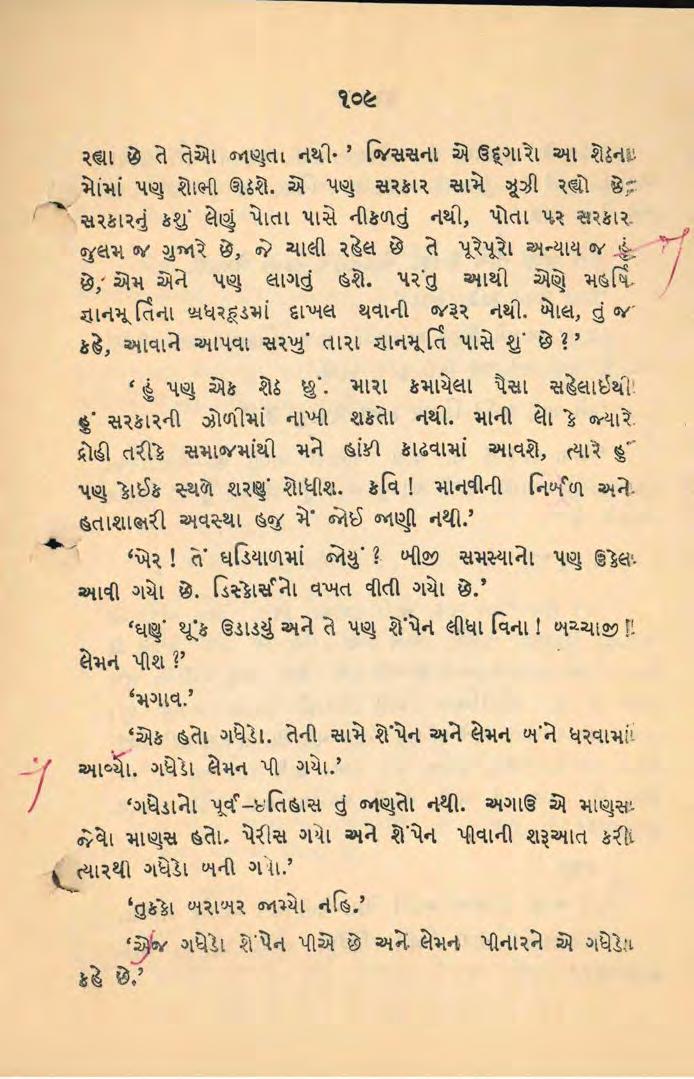 ૧૦૯
રહ્યા છે તે તેઓ જાણતા નથી.’ જિસસના એ ઉદ્ગારો આ શેઠના
મોંમાં પણ શોભી ઊઠશે. એ પણ સરકાર સામે ઝૂઝી રહ્યો છે.
સરકારનું કશું લેણું પોતા પાસે નીકળતું નથી, પોતા પર સરકાર
જુલમ જ ગુજારે છે, જે ચાલી રહેલ છે તે પૂરેપૂરો અન્યાય જ
છે, એમ એને પણ લાગતું હશે. પરંતુ આથી એણે મહર્ષિ
જ્ઞાનમૂર્તિના બ્રધરહૂડમાં દાખલ થવાની જરૂર નથી. બોલ, તું જ
કહે, આવાને આપવા સરખું તારા જ્ઞાનમૂર્તિ પાસે શું છે?’
‘હું પણ એક શેઠ છું. મારા કમાયેલા પૈસા સહેલાઈથી
હું સરકારની ઝોળીમાં નાખી શકતો નથી. માની લો કે જ્યારે
દ્રોહી તરીકે સમાજમાંથી મને હાંકી કાઢવામાં આવશે, ત્યારે હું
પણ કોઈક સ્થળે શરણું શોધીશ. કવિ! માનવીની નિર્બળ અને
હતાશાભરી અવસ્થા હજુ મેં જોઈ જાણી નથી.’
‘ખેર! તેં ઘડિયાળમાં જોયું? બીજી સમસ્યાનો પણ ઉકેલ
આવી ગયો છે. ડિસ્કોર્સનો વખત વીતી ગયો છે.’
‘ઘણું થૂંક ઉડાડ્યું અને તે પણ શેંપેન લીધા વિના! બચ્ચાજી!
લેમન પીશ?’
‘મગાવ.’
‘એક હતો ગધેડો. તેની સામે શેંપેન અને લેમન બંને ધરવામાં
આવ્યો. ગધેડો લેમન પી ગયો.’
‘ગધેડાનો પૂર્વ-ઇતિહાસ તું જાણતો નથી. અગાઉ એ માણસ
જેવો માણસ હતો. પેરીસ ગયો અને શેંપેન પીવાની શરૂઆત કરી
ત્યારથી ગધેડો બની ગયો.’
‘તુક્કો બરાબર જામ્યો નહિ.’
‘એજ ગધેડો શેંપેન પીએ છે અને લેમન પીનારને એ ગધેડો
કહે છે.’